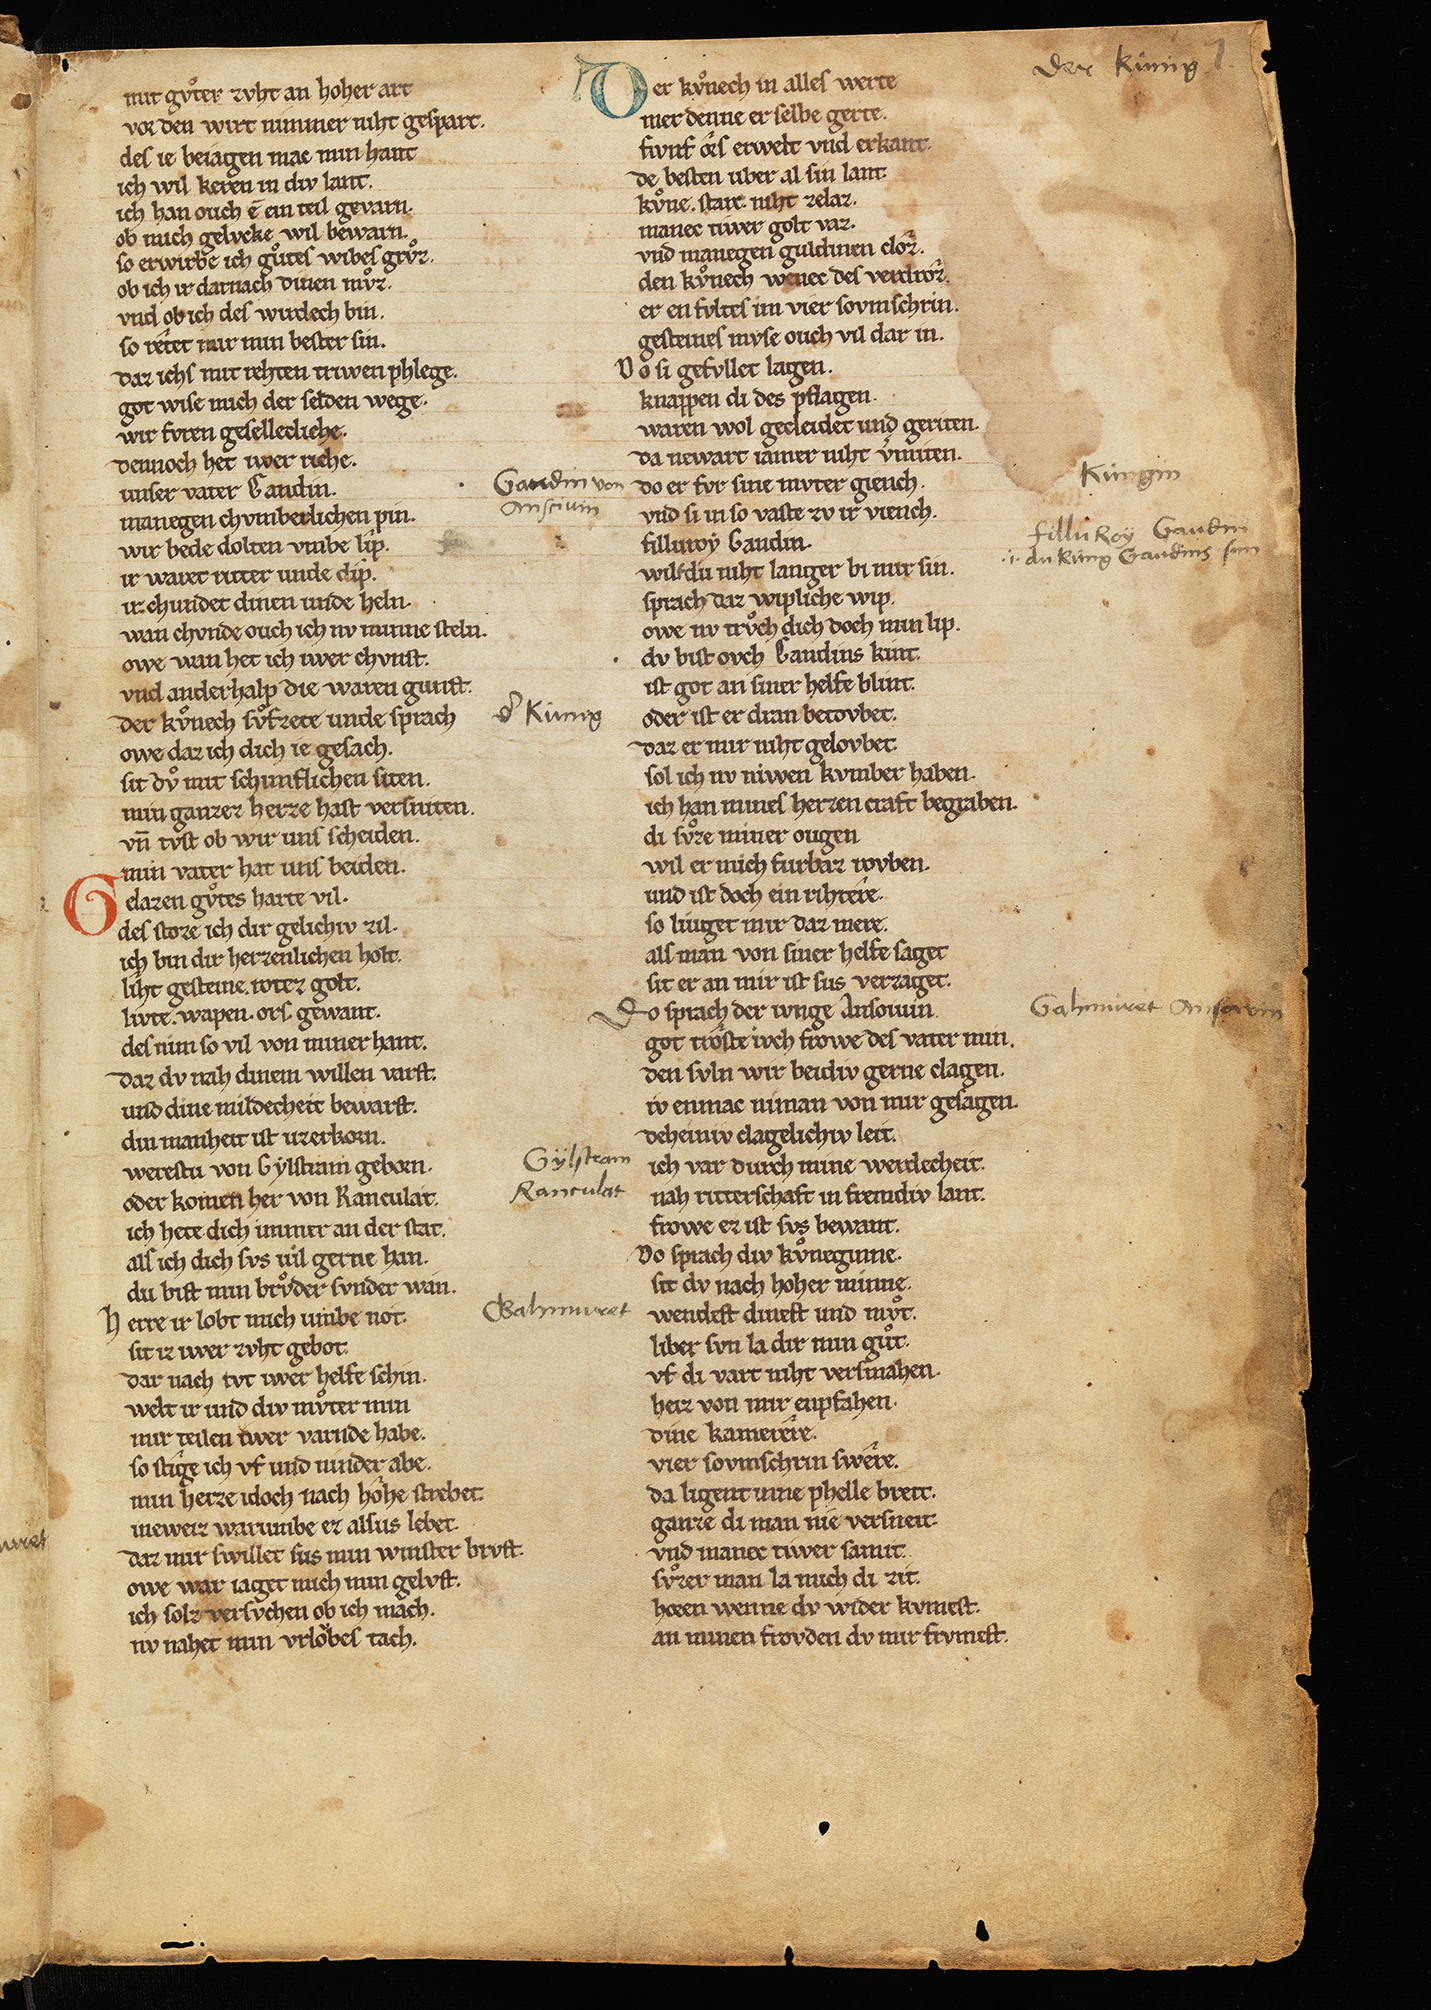 mit gvͦter zvht an hoher art
vor den wirt nimmer niht gespart.
des ie beiagen mac min hant
ich wil keren in div lant.
ich han ouch e ein teil gevarn.
ob mich gelvcke wil bewarn.
so erwirbe ich gvͦtes wibes grvͦz.
ob ich ir darnach dinen mvͦz.
vnd ob ich des wirdech bin.
so retet mir min bester sin.
daz ichs mit rehten triwen phlege.
got wise mich der selden wege.
wir fvren geselleclîche.
dennoch het iwer riche.
unser vater Gandin.
manegen chvmberlichen pin.
wir bede dolten vmbe lip.
ir waret ritter unde dip.
ir chundet dinen unde heln.
wan chvnde ouch ich nv minne steln.
owe wan het ich iwer chvnst.
vnd anderhalp die waren gunst.
der kvͦnech svͦfzete unde sprach
owe daz ich dich ie gesach.
sit dvͦ mit schimflichen siten.
min ganzez herze hast versniten.
vn̄ tvst ob wir uns scheiden.
min vater hat uns beiden.
Gelazen gvͦtes harte vil.
des stoze ich dir gelichiv zil.
ich bin dir herzenlichen holt.
liht gesteine. rotez golt.
livte. wapen. ors. gewant.
des nim so vil von miner hant.
daz dv nah dinem willen varst.
und dine mildecheit bewarst.
din manheit ist uzerkorn.
werestu von Gylstram geborn.
oder komen her von Ranculat.
ich hete dich immer an der stat.
als ich dich svs vil gerne han.
du bist min brvͦder svnder wan.
Herre ir lobt mich umbe not.
sit iz iwer zvht gebot.
dar nach tvt iwer helfe schin.
welt ir und div mvͦter min
mir teilen iwer varnde habe.
so stige ich vf und nider abe.
min herze idoch nach hohe strebet.
ineweiz warumbe ez alsus lebet.
daz mir swillet sus min winster brvst.
owe war iaget mich min gelvst.
ich solz versvchen ob ich mach.
nv nahet min vrlobes tach.
Gandin von
Anscivin
dͬ Küinig
Gÿlstram
Ranculat
Gahmuret
Der kvͦnech in alles werte
mer denne er selbe gerte.
fivnf ors erwelt vnd erkant.
de besten uber al sin lant.
kvͦne. starc. niht zelaz.
manec tiwer golt vaz.
vnd manegen guldinen cloz.
den kvͦnech wenec des verdroz.
er enfvltes im vier sovmschrin.
gesteines mvse ouch vil dar in.
Do si gefvllet lagen.
knappen di des pflagen.
waren wol gecleidet und geriten.
da newart iamer niht vͤmiten.
do er fvr sine mvter giench.
vnd si in so vaste zv ir viench.
filluroy Gandin.
wilt du niht langer bi mir sin.
sprach daz wipliche wip.
owe nv trvͦch dich doch min lip.
dv bist ovch Gandins kint.
ist got an siner helfe blint.
oder ist er dran betovbet.
daz er mir niht gelovbet.
sol ich nv niwen kvmber haben.
ich han mines herzen craft begraben.
di svͦze miner ougen
wil er mich furbaz rovben.
und ist doch ein rihtere.
so liuget mir daz mere.
als man von siner helfe saget
sit er an mir ist sus verzaget.
Do sprach der ivnge Ansouin.
got troste ivch frowe des vater min.
den svln wir beidiv gerne clagen.
iv enmac niman von mir gesagen.
deheiniv clagelichiv leit.
ich var durch mine werdecheit.
nah ritterschaft in fremdiv lant.
frowe ez ist svs bewant.
Do sprach div kvͦneginne.
sit dv nach hoher minne.
wendest dinest und mvͦt.
liber svn la dir min gvͦt.
vf di vart niht versmahen.
heiz von mir enpfahen.
dine kamerere.
vier sovmschrin swere.
da ligent inne phelle breit.
ganze di man nie versneit.
vnd manec tiwer samit.
svͦzer man la mich di zit.
horen wenne dv wider kvmest.
an minen frovden dv mir frvmest.
der küinig 1
Küngin
filluRoÿ Gandin
.i. du küng Gandins sun
Gahmuret Ansovin